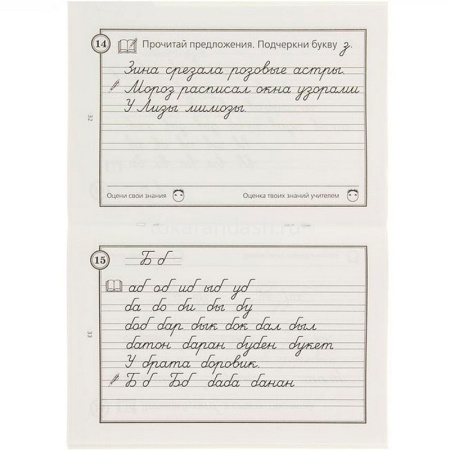 14 Прочитай предложения. Подчеркни букву з.
Зина срезала розовые астры.
Мороз расписал окна узорами.
У Лизы мимозы.
32
Оцени свои знания Оценка твоих знаний учителем
15 Б б
аб об иб ыб уб
ба бо би бы бу
боб бар бык бок бал был
батон баран бубен букет
У брата боровик.
Б б Бб баба банан
33